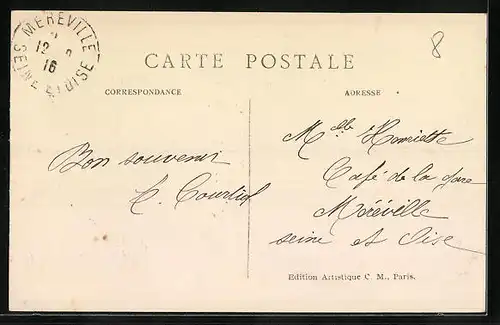 MEREVILLE
12
16
SEINE & OISE
8
CARTE POSTALE
CORRESPONDANCE
ADRESSE
Bon souvenir
Mlle Henriette
Café de la Gare
Méréville
seine et Oise
Edition Artistique C. M., Paris.